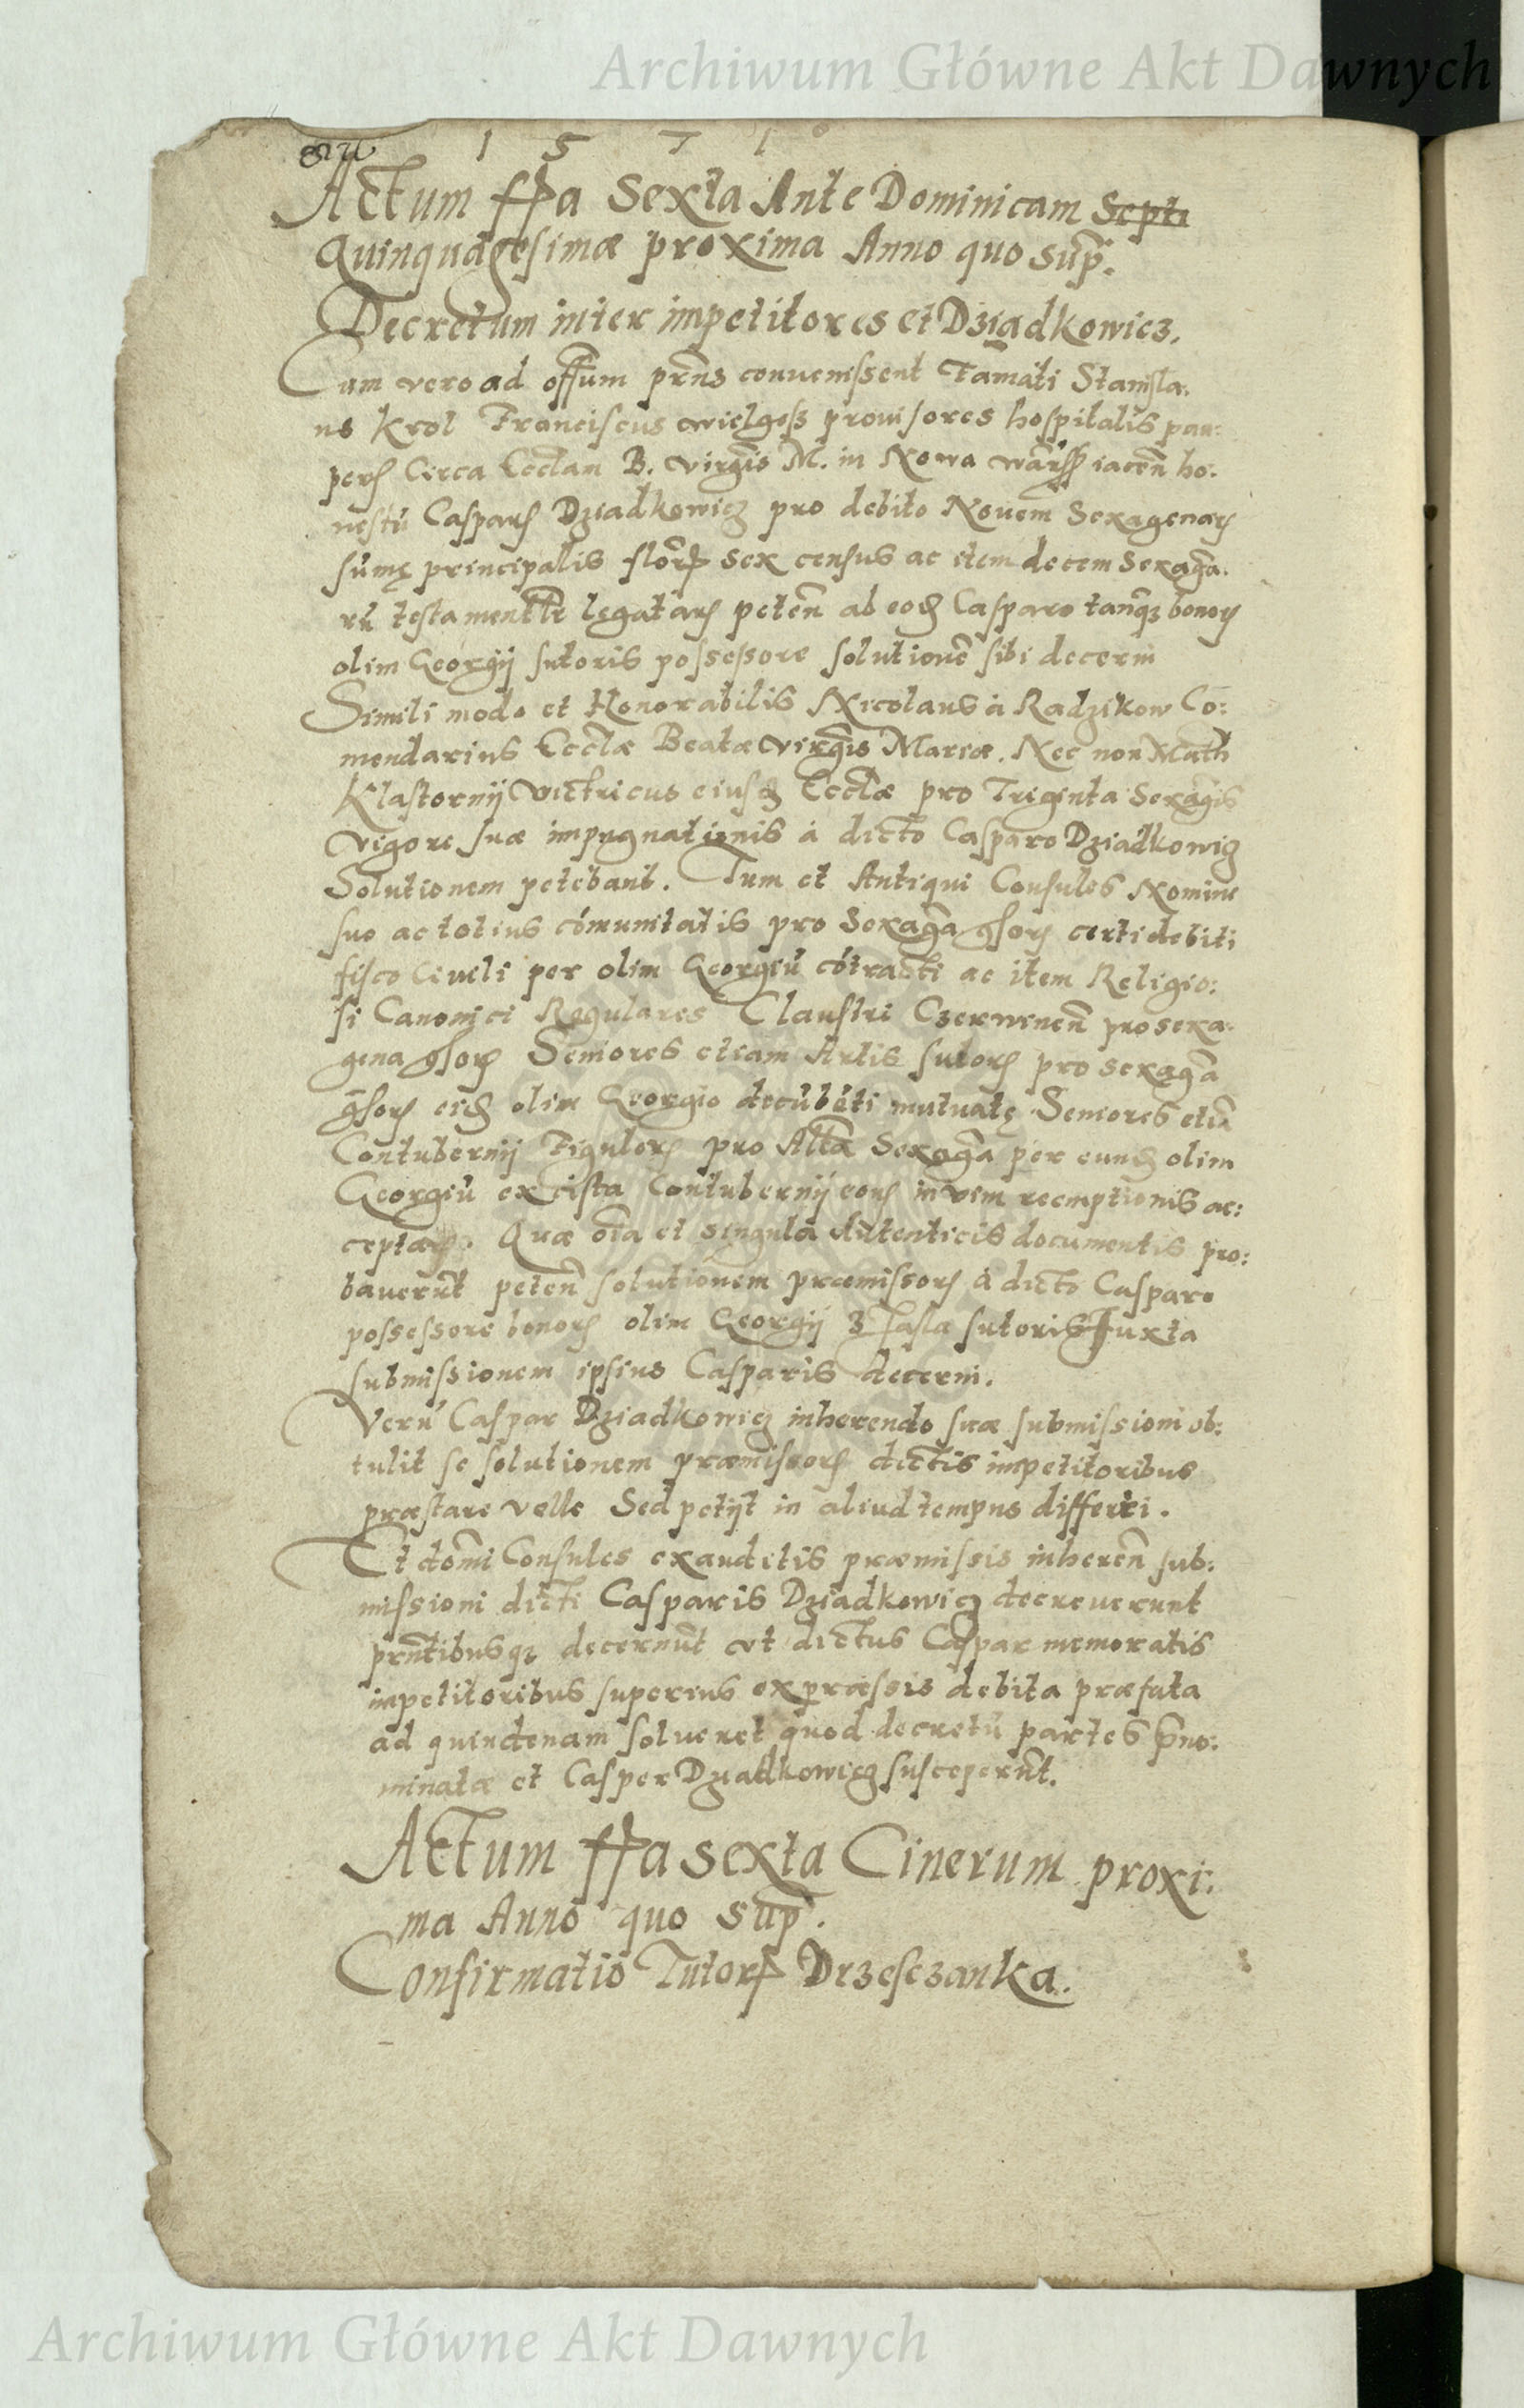 Archiwum Główne Akt Dawnych
1 5 7 1
Actum ffa Sexta Ante Dominicam Septi
Quinquagesimæ proxima Anno quo sup.
Decretum inter impetitores et Dziadkowicz.
Cum vero ad offum prñs convenissent Famati Stanisla:
us Krol Franciscus wielgosz provisores hospitalis pau:
perꝝ Circa Ecclam B. virgis M. in Nowa warss iacen ho:
nestũ Casparꝝ Dziadkowicz pro debito Novem Sexagenarꝝ
sumę principalis florꝝ sex census ac item decem Sexaga:
rũ testamentlr legatarꝝ peteñ ab eod Casparo tanqꝫ bonoꝝ
olim Georgij sutoris possessore solutionẽ sibi decerni
Simili modo et Honorabilis Nicolaus à Radzikow Co:
mendarius Ecclæ Beatæ virgis Mariæ. Nec non Math
Klastornij victricus eiusd Ecclæ pro Triginta Sexagis
vigore suæ impugnationis à dicto Casparo Dziadkowicz
Solutionem petebant. Tum et Antiqui Consules Nomine
suo ac totius cõmunitatis pro Sexaga gsorꝝ certi debiti
fisco Civili per olim Georgiũ cõtracti ac item Religio:
si Canonici Regulares Claustri Czerwineñ pro sexa:
gena gsorꝝ Seniores etiam Artis sutorꝝ pro sexaga
gsorꝝ eid olim Georgio decũbẽti mutuatę Seniores etiã
Contubernij Figulorꝝ pro Alta Sexaga per eund olim
Georgiũ ex cista Contubernij eorꝝ in vim reemptionis ac:
ceptarꝝ. Quæ oia et singula Autenticis documentis pro:
baverũt peteñ solutionem præmissorꝝ à dicto Casparo
possessore bonorꝝ olim Georgij Zasla sutoris Juxta
submissionem ipsius Casparis decerni.
Verũ Caspar Dziadkowicz inherendo suæ submissioni ob:
tulit se solutionem præmissorꝝ dictis impetitoribus
præstare velle Sed petijt in aliud tempus differri.
Et domi Consules exauditis præmissis inhereñ sub:
missioni dicti Casparis Dziadkowicz decreverunt
prntibusqꝫ decernũt vt dictus Caspar memoratis
impetitoribus superius expræssis debita præfata
ad quindenam solveret quod decretũ partes pno:
minatæ et Casper Dziadkowicz susceperũt.
Actum ffa sexta Cinerum proxi:
ma Anno quo sup.
Confirmatio Tutorꝝ Drzesczanka.
Archiwum Główne Akt Dawnych